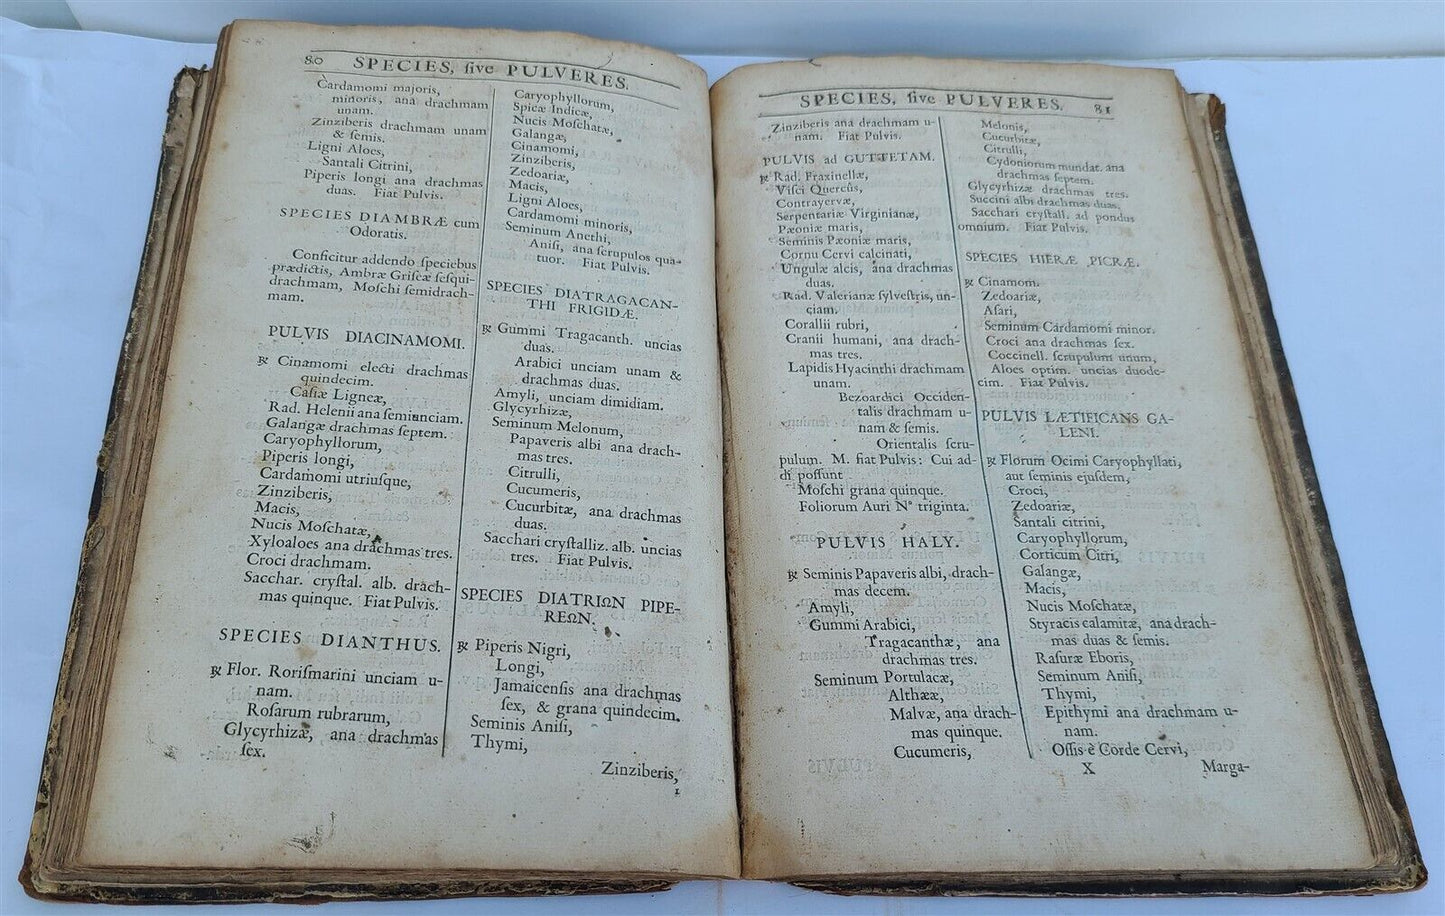 80 SPECIES, ſive PULVERES.
Cardamomi majoris,
minoris, ana drachmam
unam.
Zinziberis drachmam unam
& ſemis.
Ligni Aloes,
Santali Citrini,
Piperis longi ana drachmas
duas. Fiat Pulvis.
SPECIES DIAMBRÆ cum
Odoratis.
Conficitur addendo ſpeciebus
prædictis, Ambræ Griſeæ ſeſqui-
drachmam, Moſchi ſemidrach-
mam.
PULVIS DIACINAMOMI.
℞ Cinamomi electi drachmas
quindecim.
Caſiæ Ligneæ,
Rad. Helenii ana ſemiunciam.
Galangæ drachmas ſeptem.
Caryophyllorum,
Piperis longi,
Cardamomi utriuſque,
Zinziberis,
Macis,
Nucis Moſchatæ,
Xyloaloes ana drachmas tres.
Croci drachmam.
Sacchar. cryſtal. alb. drach-
mas quinque. Fiat Pulvis.
SPECIES DIANTHUS.
℞ Flor. Roriſmarini unciam u-
nam.
Roſarum rubrarum,
Glycyrhizæ, ana drachmas
ſex.
Caryophyllorum,
Spicæ Indicæ,
Nucis Moſchatæ,
Galangæ,
Cinamomi,
Zinziberis,
Zedoariæ,
Macis,
Ligni Aloes,
Cardamomi minoris,
Seminum Anethi,
Aniſi, ana ſcrupulos qua-
tuor. Fiat Pulvis.
SPECIES DIATRAGACAN-
THI FRIGIDÆ.
℞ Gummi Tragacanth. uncias
duas.
Arabici unciam unam &
drachmas duas.
Amyli, unciam dimidiam.
Glycyrhizæ,
Seminum Melonum,
Papaveris albi ana drach-
mas tres.
Citrulli,
Cucumeris,
Cucurbitæ, ana drachmas
duas.
Sacchari cryſtalliz. alb. uncias
tres. Fiat Pulvis.
SPECIES DIATRIΩN PIPE-
REΩN.
℞ Piperis Nigri,
Longi,
Jamaicenſis ana drachmas
ſex, & grana quindecim.
Seminis Aniſi,
Thymi,
Zinziberis,
1
SPECIES, ſive PULVERES. 81
Zinziberis ana drachmam u-
nam. Fiat Pulvis.
PULVIS ad GUTTETAM.
℞ Rad. Fraxinellæ,
Viſci Quercûs,
Contrayervæ,
Serpentariæ Virginianæ,
Pæoniæ maris,
Seminis Pæoniæ maris,
Cornu Cervi calcinati,
Ungulæ alcis, ana drachmas
duas.
Rad. Valerianæ ſylveſtris, un-
ciam.
Corallii rubri,
Cranii humani, ana drach-
mas tres.
Lapidis Hyacinthi drachmam
unam.
Bezoardici Occiden-
talis drachmam u-
nam & ſemis.
Orientalis ſcru-
pulum. M. fiat Pulvis: Cui ad-
di poſſunt
Moſchi grana quinque.
Foliorum Auri N° triginta.
PULVIS HALY.
℞ Seminis Papaveris albi, drach-
mas decem.
Amyli,
Gummi Arabici,
Tragacanthæ, ana
drachmas tres.
Seminum Portulacæ,
Althææ,
Malvæ, ana drach-
mas quinque.
Cucumeris,
Melonis,
Cucurbitæ,
Citrulli,
Cydoniorum mundat. ana
drachmas ſeptem.
Glycyrhizæ drachmas tres.
Succini albi drachmas duas.
Sacchari cryſtall. ad pondus
omnium. Fiat Pulvis.
SPECIES HIERÆ PICRÆ.
℞ Cinamom.
Zedoariæ,
Aſari,
Seminum Cardamomi minor.
Croci ana drachmas ſex.
Coccinell. ſcrupulum unum,
Aloes optim. uncias duode-
cim. Fiat Pulvis.
PULVIS LÆTIFICANS GA-
LENI.
℞ Florum Ocimi Caryophyllati,
aut ſeminis ejuſdem,
Croci,
Zedoariæ,
Santali citrini,
Caryophyllorum,
Corticum Citri,
Galangæ,
Macis,
Nucis Moſchatæ,
Styracis calamitæ, ana drach-
mas duas & ſemis.
Raſuræ Eboris,
Seminum Aniſi,
Thymi,
Epithymi ana drachmam u-
nam.
Oſſis è Corde Cervi,
X Marga-